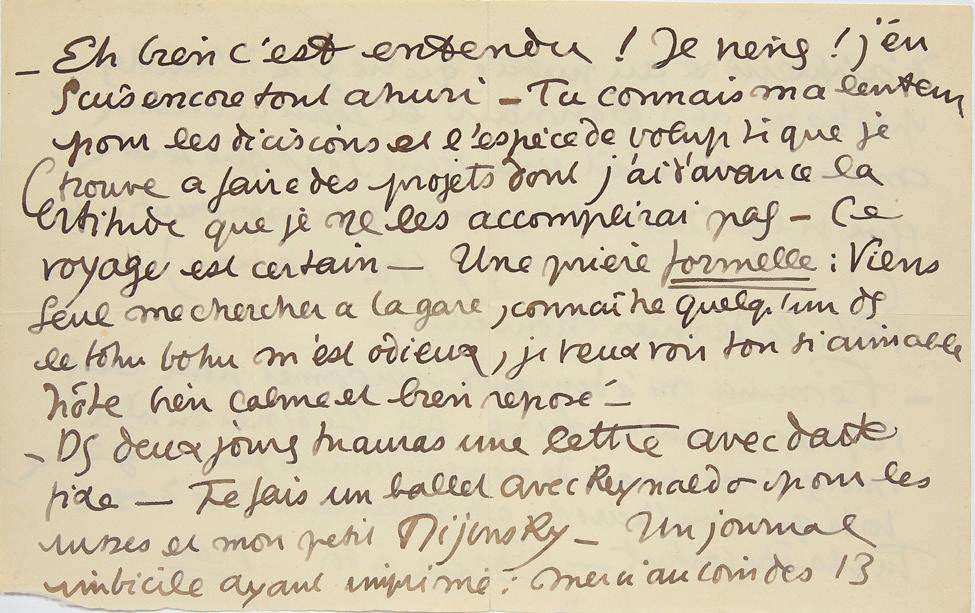 – Eh bien c'est entendu ! Je viens ! j'en
suis encore tout ahuri – Tu connais ma lenteur
pour les dicisions et l'espèce de volupté que je
trouve a faire des projets dont j'ai d'avance la
certitude que je ne les accomplirai pas – Ce
voyage est certain — Une prière formelle : Viens
seul me chercher a la gare, connaître quelqu'un ds
le tohu bohu m'est odieux, je veux voir ton si aimable
hôte bien calme et bien reposé –
– Ds deux jours tu auras une lettre avec date
fixe — Je fais un ballet avec Reynaldo pour les
russes et mon petit Nijinsky – Un journal
imbicile ayant imprimé : merci au coin des 13